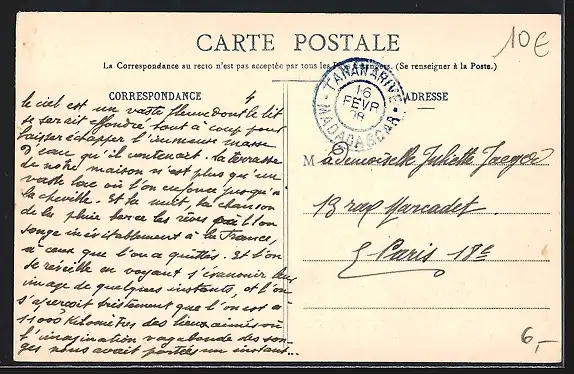 CARTE POSTALE
10€
La Correspondance au recto n'est pas acceptée par tous les Pays étrangers. (Se renseigner à la Poste.)
CORRESPONDANCE
ADRESSE
TANANARIVE
16
FEVR
08
MADAGASCAR
4
le ciel est un vaste fleuve dont le lit
se serait effondré tout à coup pour
laisser échapper l'immense masse
d'eau qu'il contenait. La terrasse
de notre maison n'est plus qu'un
vaste lac où l'on enfonce jusqu'à
la cheville. Et la nuit, la chanson
de la pluie berce les rêves où l'on
songe inévitablement à la France,
à ceux que l'on a quittés. Et l'on
se réveille en voyant s'évanouir
image de quelques instants, et l'on
s'aperçoit tristement que l'on est à
11.000 kilomètres des lieux aimés où
l'imagination vagabonde des son-
ges nous avait portés un instant...
Mademoiselle Juliette Jaeger
13 rue Marcadet
Paris 18e
6,-